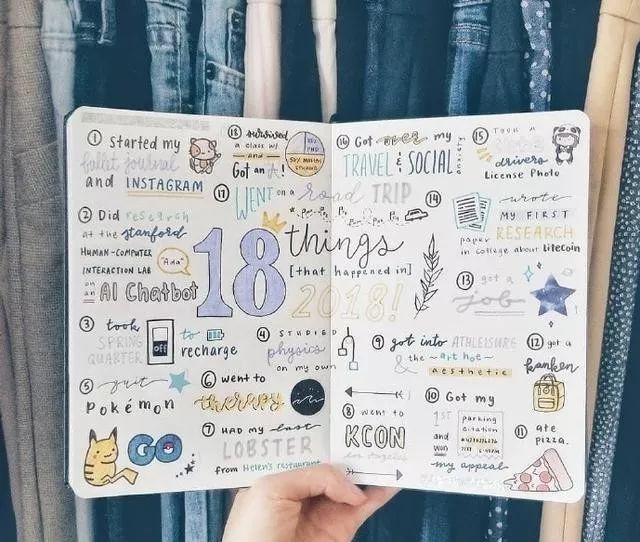 18 things
[that happened in]
2018!
① started my
bullet journal
and INSTAGRAM
② Did research
at the stanford
HUMAN-COMPUTER
INTERACTION LAB
on an AI Chatbot
"Ada"
③ took
SPRING
QUARTER
off
to
recharge
④ STUDIED
physics
on my own
⑤ quit
Pokémon
GO
⑥ went to
therapy
⑦ HAD my last
LOBSTER
from Helen's restaurant
⑧ went to
KCON
los angeles
⑨ got into ATHLEISURE
& the ~art hoe~
aesthetic
⑩ Got my
1ST
parking
citation
and won
my appeal
⑪ ate
pizza.
⑫ got a
kanken
⑬ got a
job
⑭ wrote
MY FIRST
RESEARCH
paper
in college about litecoin
⑮ TOOK a
drivers
License Photo
⑯ Got over my
TRAVEL & SOCIAL
anxiety
⑰ WENT on a road TRIP
⑱ survived
a class w/
and
Got an A!